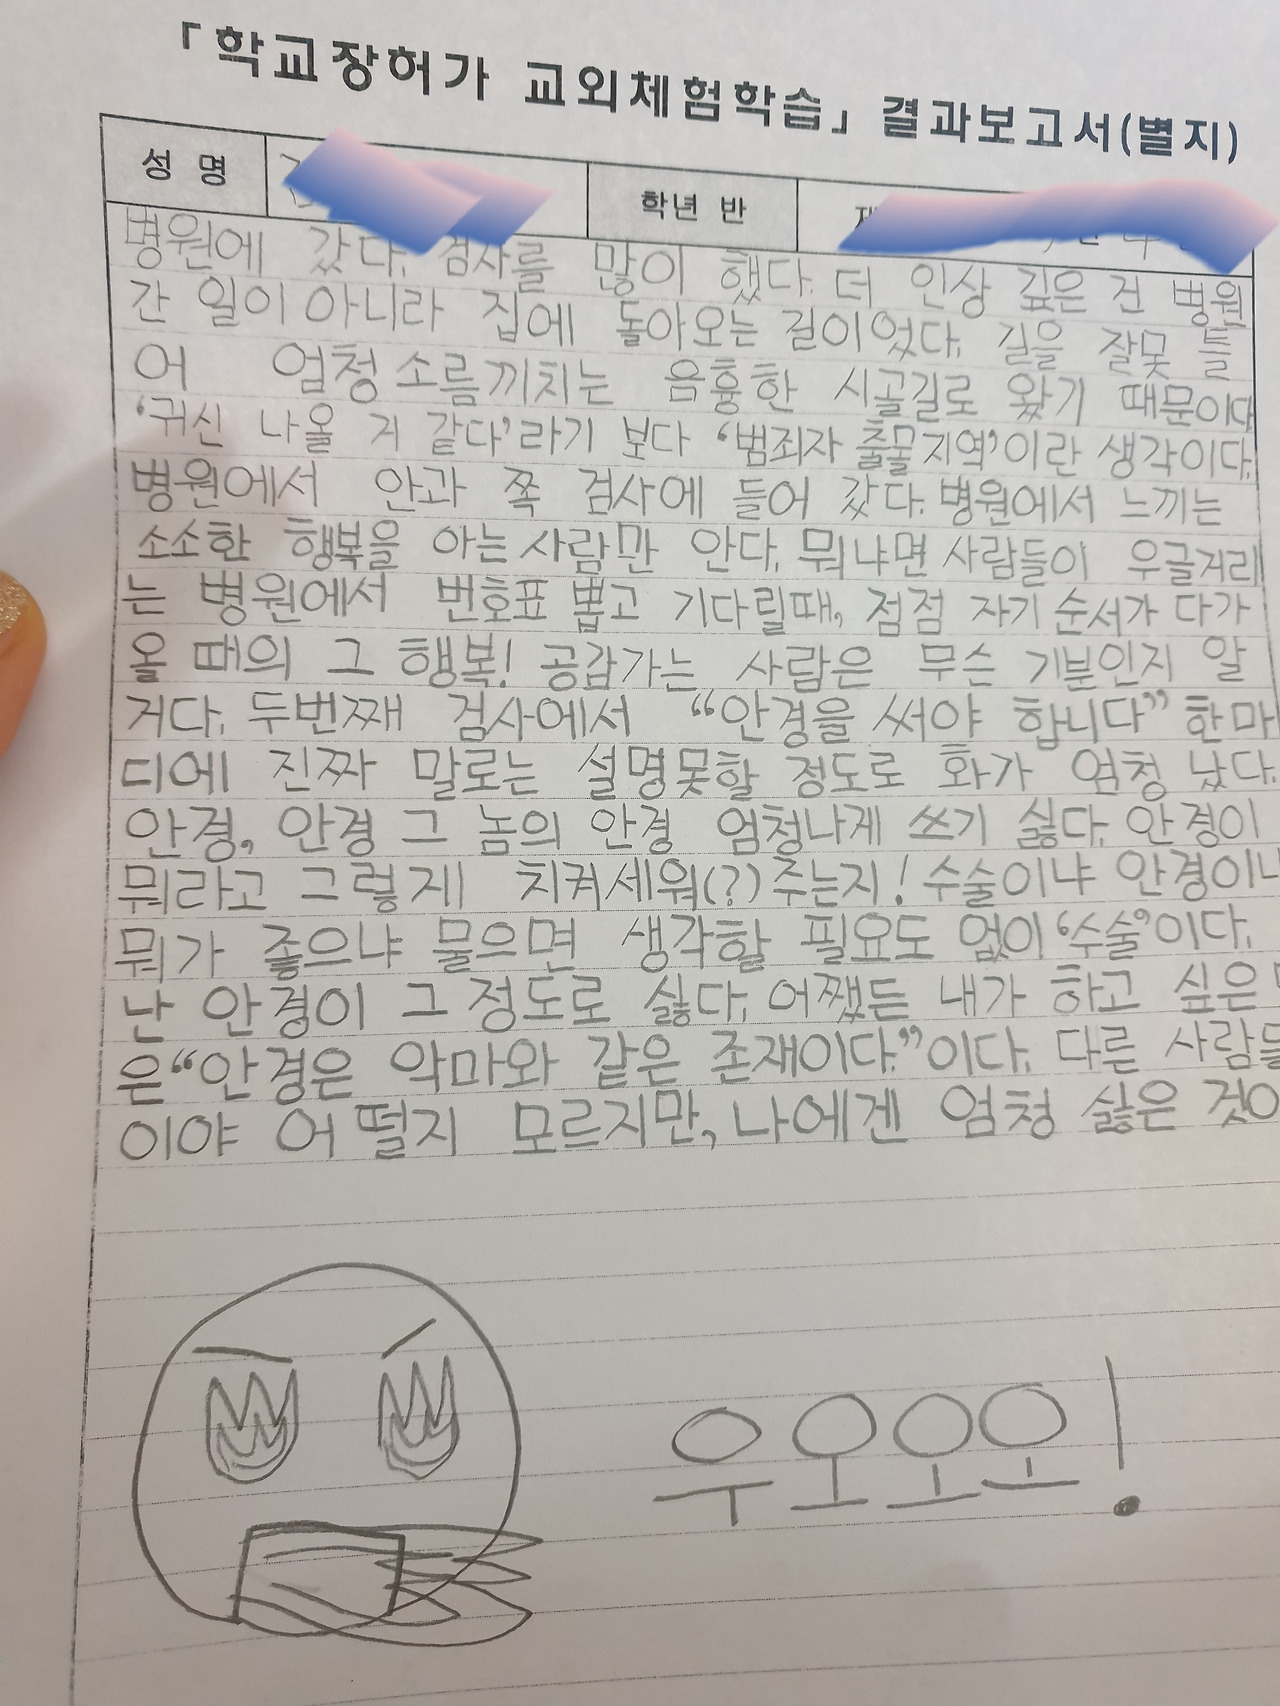 「학교장허가 교외체험학습」 결과보고서(별지)
성 명 학년 반 제
병원에 갔다. 검사를 많이 했다. 더 인상 깊은 건 병원
간 일이 아니라 집에 돌아오는 길이었다. 길을 잘못 틀
어 엄청 소름끼치는 음흉한 시골길로 왔기 때문이다
‘귀신 나올 거 같다’라기 보다 ‘범죄자 출몰지역’이란 생각이다.
병원에서 안과 쪽 검사에 들어 갔다. 병원에서 느끼는
소소한 행복을 아는 사람만 안다. 뭐냐면 사람들이 우글거리
는 병원에서 번호표 뽑고 기다릴때, 점점 자기 순서가 다가
올 때의 그 행복! 공감가는 사람은 무슨 기분인지 알
거다. 두번째 검사에서 “안경을 써야 합니다” 한마
디에 진짜 말로는 설명못할 정도로 화가 엄청 났다.
안경, 안경 그 놈의 안경 엄청나게 쓰기 싫다. 안경이
뭐라고 그렇게 치켜세워(?)주는지! 수술이냐 안경이냐
뭐가 좋으냐 물으면 생각할 필요도 없이 ‘수술’이다.
난 안경이 그 정도로 싫다. 어쨌든 내가 하고 싶은
은 “안경은 악마와 같은 존재이다.”이다. 다른 사람들
이야 어떨지 모르지만, 나에겐 엄청 싫은 것이
우오오오!